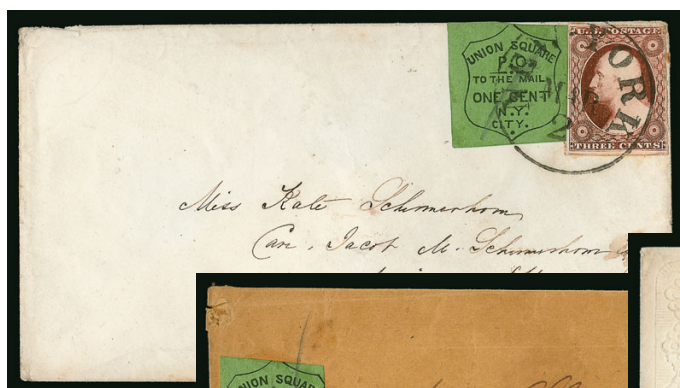 UNION SQUARE
P.O.
TO THE MAIL
ONE CENT
N.Y.
CITY.
U.S. POSTAGE
THREE CENTS
YORK
2
Miss Kate Schermerhorn
Care. Jacob M. Schermerhorn
UNION SQUAR